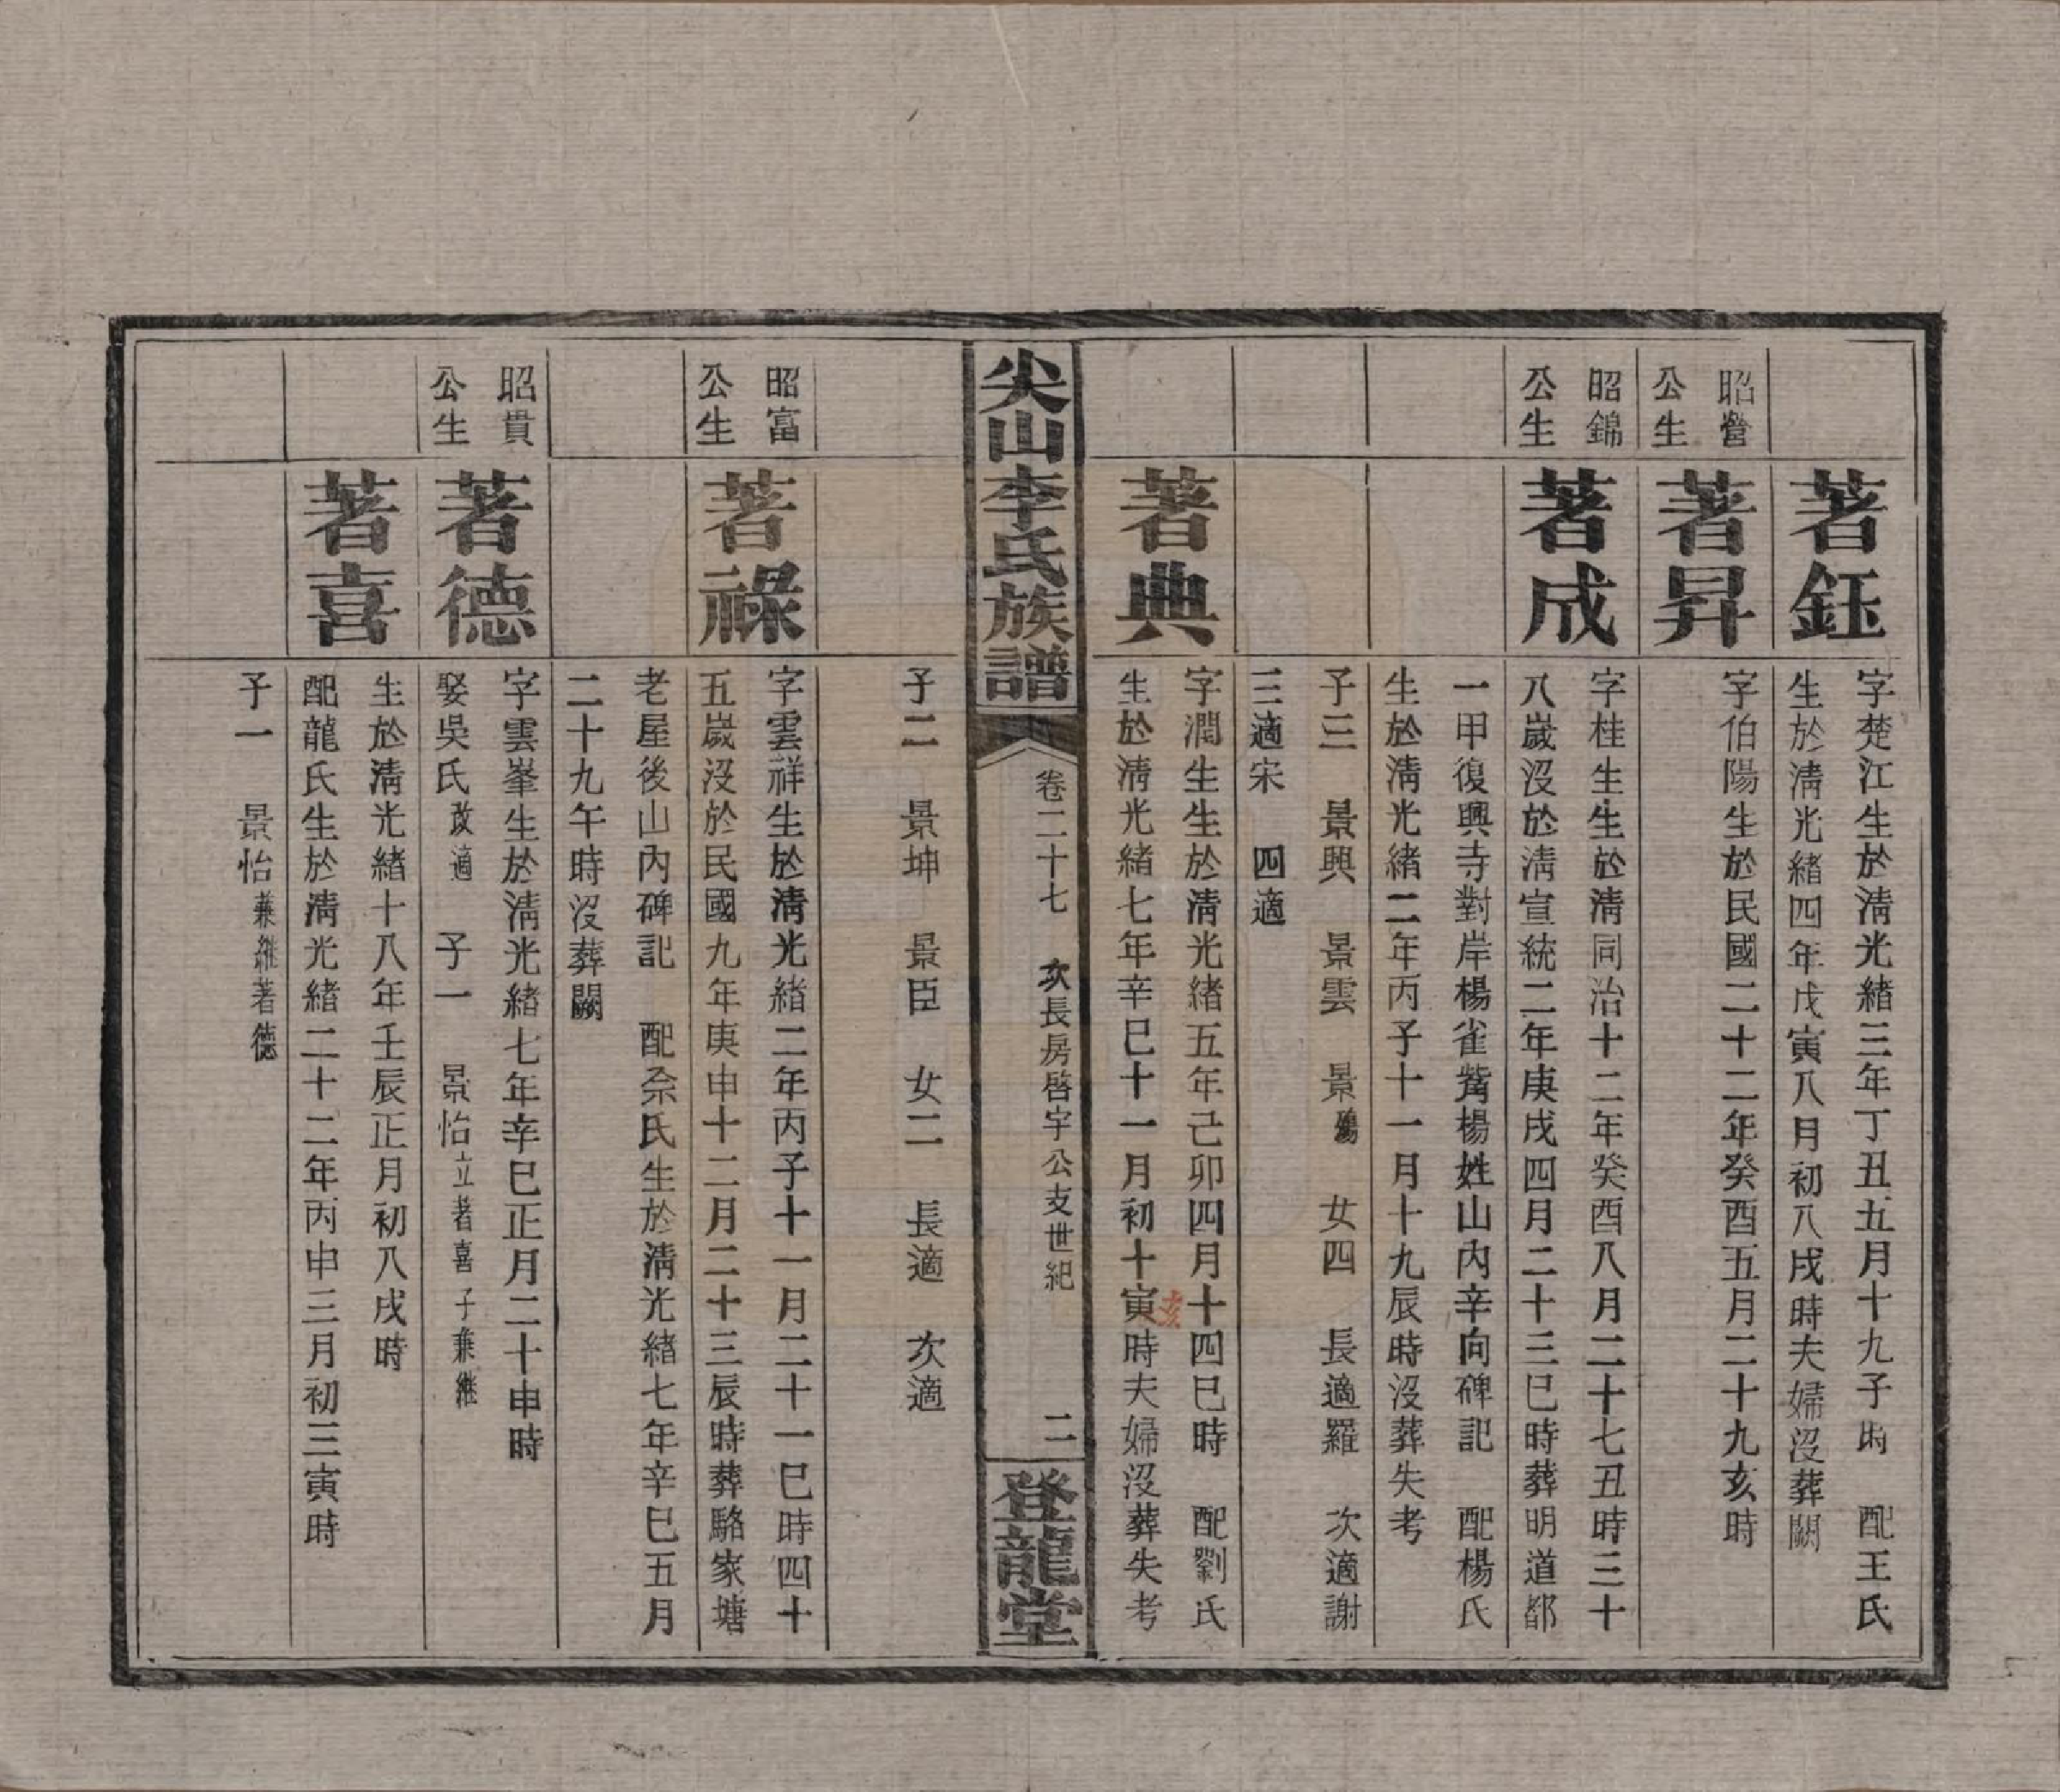 著鈺
字楚江生於淸光緖三年丁丑五月十九子時　配王氏
生於淸光緖四年戊寅八月初八戌時夫婦沒葬闕
昭營
公生
著昇
字伯陽生於民國二十二年癸酉五月二十九亥時
昭錦
公生
著成
字桂生生於淸同治十二年癸酉八月二十七丑時三十
八歲沒於淸宣統二年庚戌四月二十三巳時葬明道都
一甲復興寺對岸楊雀觜楊姓山內辛向碑記　配楊氏
生於淸光緖二年丙子十一月十九辰時沒葬失考
子三　景興　景雲　景鵷　女四　長適羅　次適謝
三適宋　四適
著典
字潤生生於淸光緖五年己卯四月十四巳時　配劉氏
生於淸光緖七年辛巳十一月初十寅時夫婦沒葬失考
亥
尖山李氏族譜
卷二十七　次長房啓宇公支世紀
二
登龍堂
子二　景坤　景臣　女二　長適　次適
昭富
公生
著祿
字雲祥生於淸光緖二年丙子十一月二十一巳時四十
五歲沒於民國九年庚申十二月二十三辰時葬駱家塘
老屋後山內碑記　配佘氏生於淸光緖七年辛巳五月
二十九午時沒葬闕
昭貴
公生
著德
字雲峯生於淸光緖七年辛巳正月二十申時
娶吳氏改適　子一　景怡立著喜子兼繼
著喜
生於淸光緖十八年壬辰正月初八戌時
配龍氏生於淸光緖二十二年丙申三月初三寅時
子一　景怡兼繼著德